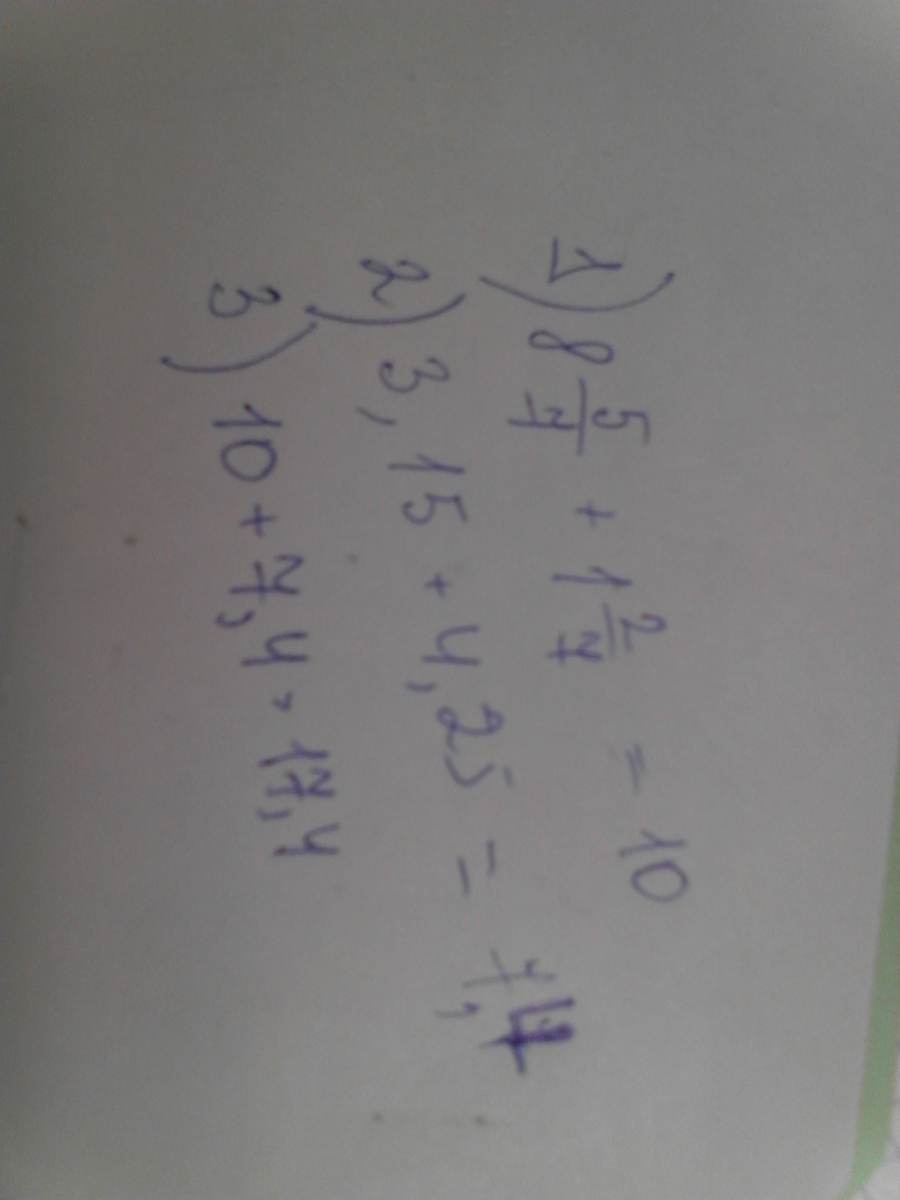 1) 8 5/7 + 1 2/7 = 10
2) 3,15 + 4,25 = 7,4
3) 10 + 7,4 = 17,4